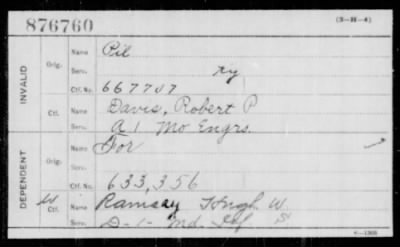 876760 (3-H-4)
INVALID
Orig. Name Pil
Serv. Ky
Ctf. No. 667707
Ctf. Name Davis, Robert P
Serv. A 1 Mo Engrs.
DEPENDENT
Orig. Name For
Serv.
Ctf. No. 633,356
W Ctf. Name Ramsay Hugh W.
Serv. D-1- Md. Inf S